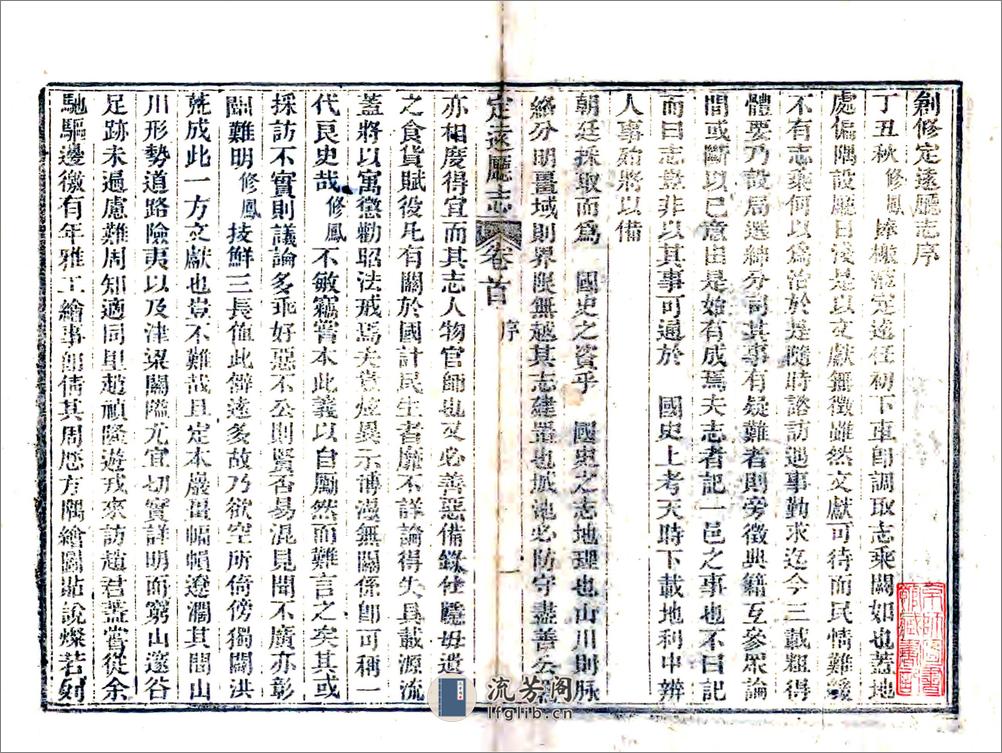 創修定遠廳志序
丁丑秋修鳳捧檄蒞定遠任初下車卽調取志乘闕如也蓋地
處偏隅設廳日淺是以文獻無徵雖然文獻可待而民情難緩
不有志乘何以爲治於是隨時諮訪遇事勤求迄今三載粗得
體要乃設局選紳分司其事有疑難者則旁徵典籍互參眾論
間或斷以己意由是始有成焉夫志者記一邑之事也不曰記
而曰志豈非以其事可通於 國史上考天時下載地利中辨
人事殆將以備
朝廷採取而爲 國史之資乎 國史之志地理也山川則脉
絡分明畺域則界限無越其志建置也城池必防守盡善公
定遠廳志 卷首 序 一
亦相度得宜而其志人物官師也又必善惡備錄仕隱毋遺
之食貨賦役凡有關於國計民生者靡不詳論得失具載源流
蓋將以寓懲勸昭法戒焉夫豈炫異示博漫無關係卽可稱一
代良史哉修鳳不敏竊嘗本此義以自勵然而難言之矣其或
採訪不實則議論多乖好惡不公則賢否易混見聞不廣亦彰
闡難明修鳳技鮮三長值此僻遠多故乃欲空所倚傍獨闢洪
荒成此一方文獻也豈不難哉且定本巖疆幅幀遼濶其間山
川形勢道路險夷以及津梁關隘尤宜切實詳明而窮山邃谷
足跡未遍慮難周知適同里趙禎隆遊戎來訪趙君蓋嘗從余
馳驅邊徼有年雅工繪事卽倩其周歷方隅繪圖點說燦若列
流芳阁
lfglib.cn